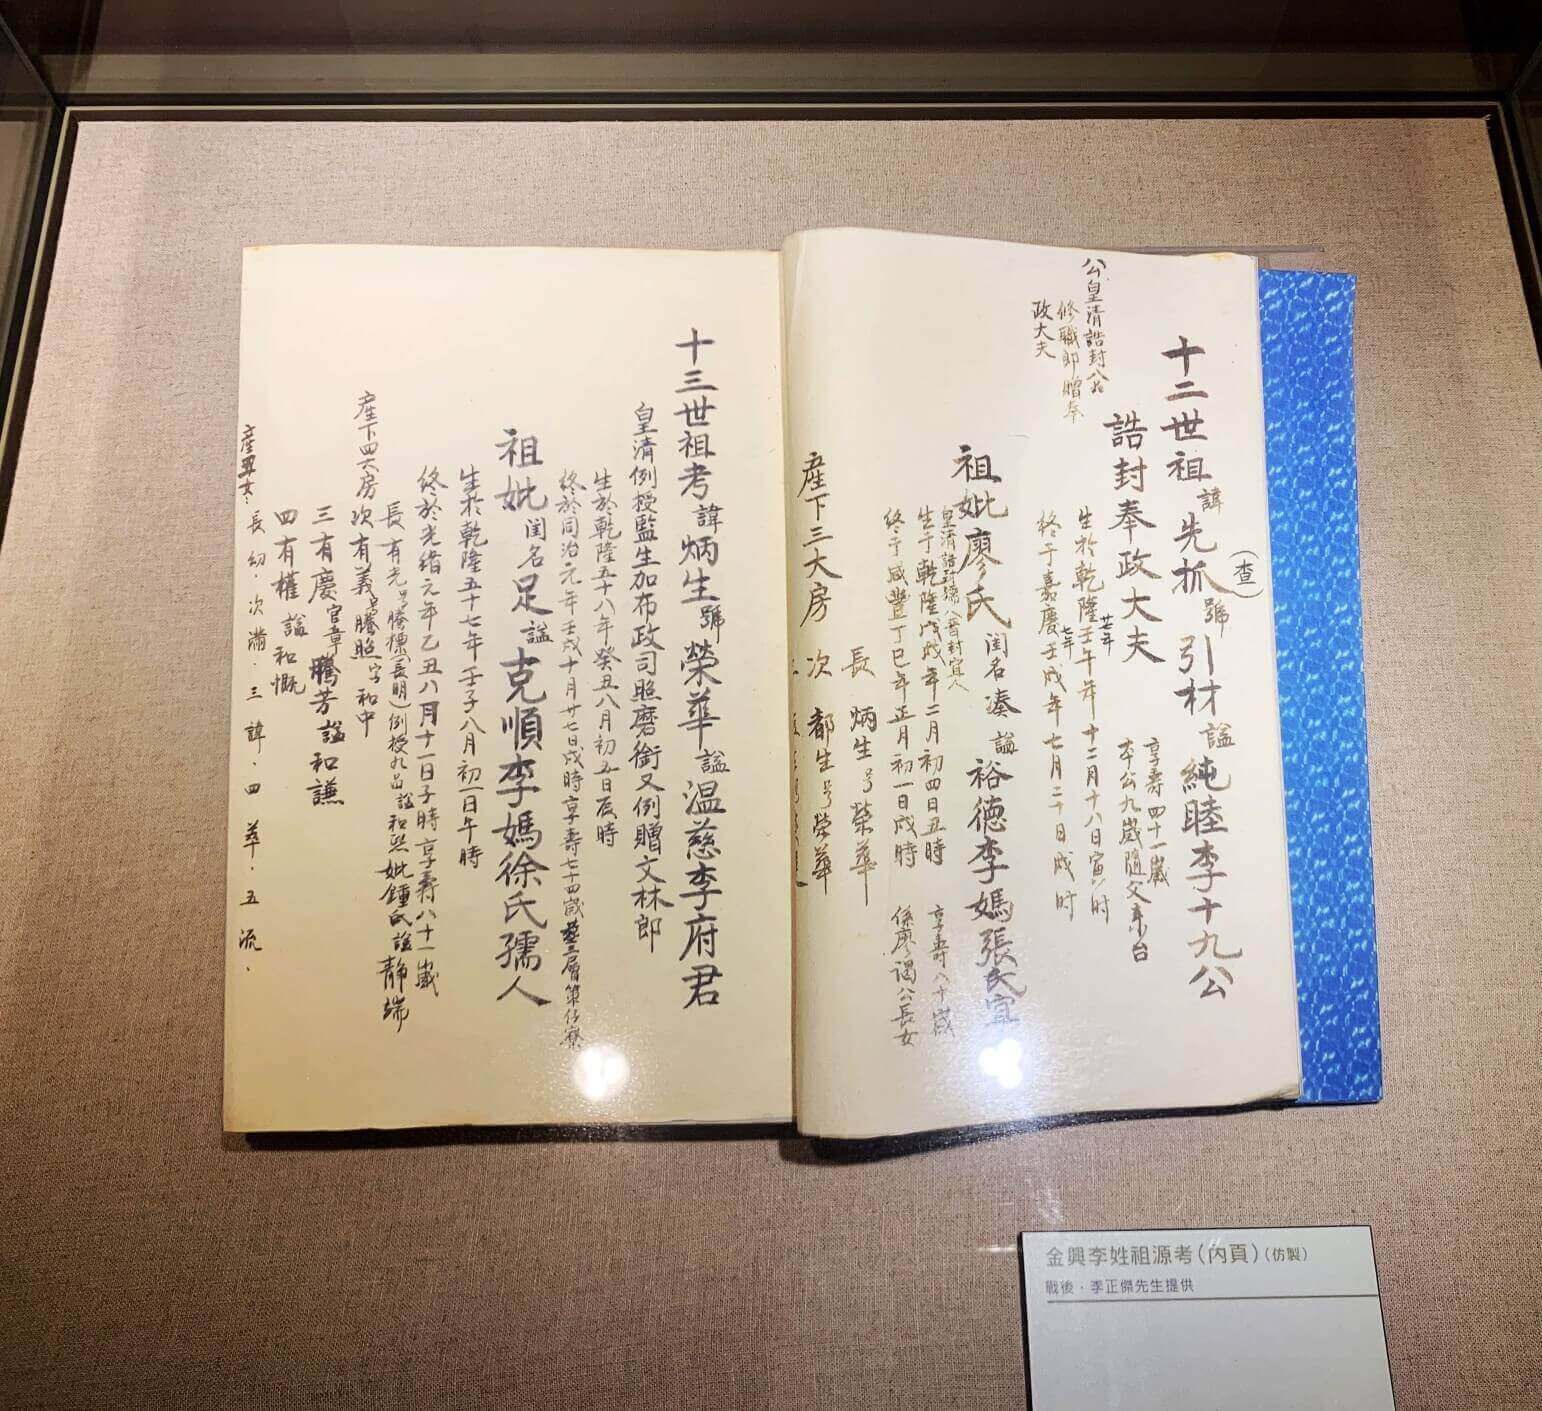 十二世祖諱先抓號引材謚純睦李十九公
(查)
誥封奉政大夫
公皇清誥封
修職郎贈奉
政大夫
生於乾隆壬午年十二月十八日寅時
廿七年
享壽四十一歲
本公九歲隨父來台
終于嘉慶壬戌年七月二十日戌时
七年
祖妣廖氏閨名湊謚裕德李媽張氏宜
生于乾隆戊戌年二月初四日丑時
享壽八十歲
終于咸豐丁巳年正月初一日戌時
係廖謁公長女
產下三大房
長炳生号榮華
次都生号榮華
十三世祖考諱炳生號榮華謚温慈李府君
皇清例授監生加布政司照磨銜又例贈文林郎
生於乾隆五十八年癸丑八月初五日辰時
終於同治元年壬戌十月廿七日戌時享壽七十四歲
祖妣閨名足謚克順李媽徐氏孺人
生於乾隆五十七年壬子八月初一日午時
終於光緒元年乙丑八月十一日子時享壽八十一歲
產下四大房
長有光号騰標(長明)例授九品謚和熙妣鍾氏謚靜端
次有義号騰照字和中
三有慶官章騰芳謚和謙
四有權謚和慨
產男女:長幼.次滿.三諱.四華.五流.
金興李姓祖源考(內頁)(仿製)
戰後.李正傑先生提供